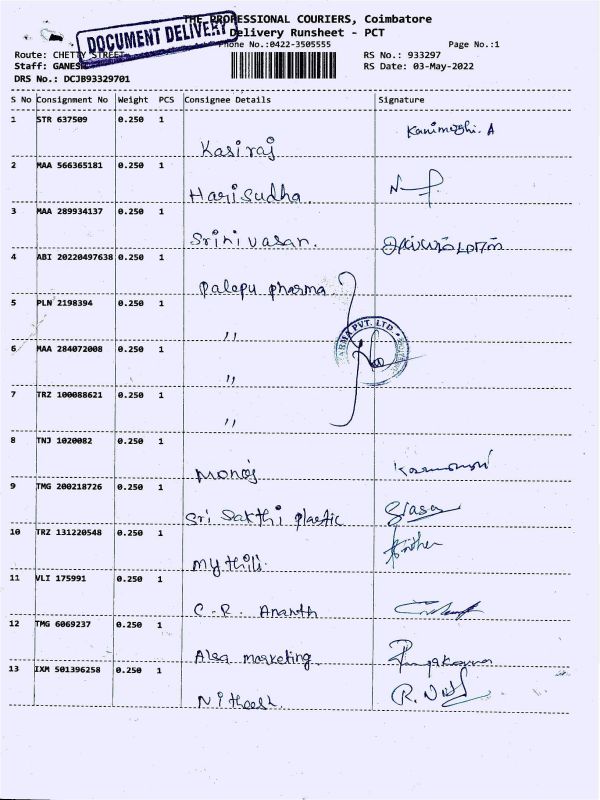 THE PROFESSIONAL COURIERS, Coimbatore
DOCUMENT DELIVERY
Delivery Runsheet - PCT
Phone No.:0422-3505555
Page No.:1
Route: CHETTY STREET
RS No.: 933297
Staff: GANESH
RS Date: 03-May-2022
DRS No.: DCJB93329701
S No Consignment No Weight PCS Consignee Details Signature
1 STR 637509 0.250 1 Kasiraj Kanimozhi. A
2 MAA 566365181 0.250 1 Harisudha.
3 MAA 289934137 0.250 1 Srinivasan.
4 ABI 20220497638 0.250 1 Palepu pharma
5 PLN 2198394 0.250 1 ,,
PHARMA PVT. LTD.
6 MAA 284072008 0.250 1 ,,
7 TRZ 100088621 0.250 1 ,,
8 TNJ 1020082 0.250 1 Monoj
9 TMG 200218726 0.250 1 Sri Sakthi plastic
10 TRZ 131220548 0.250 1 Mythili.
11 VLI 175991 0.250 1 C.R. Ananth
12 TMG 6069237 0.250 1 Alsa marketing
13 IXM 501396258 0.250 1 Nitheesh.